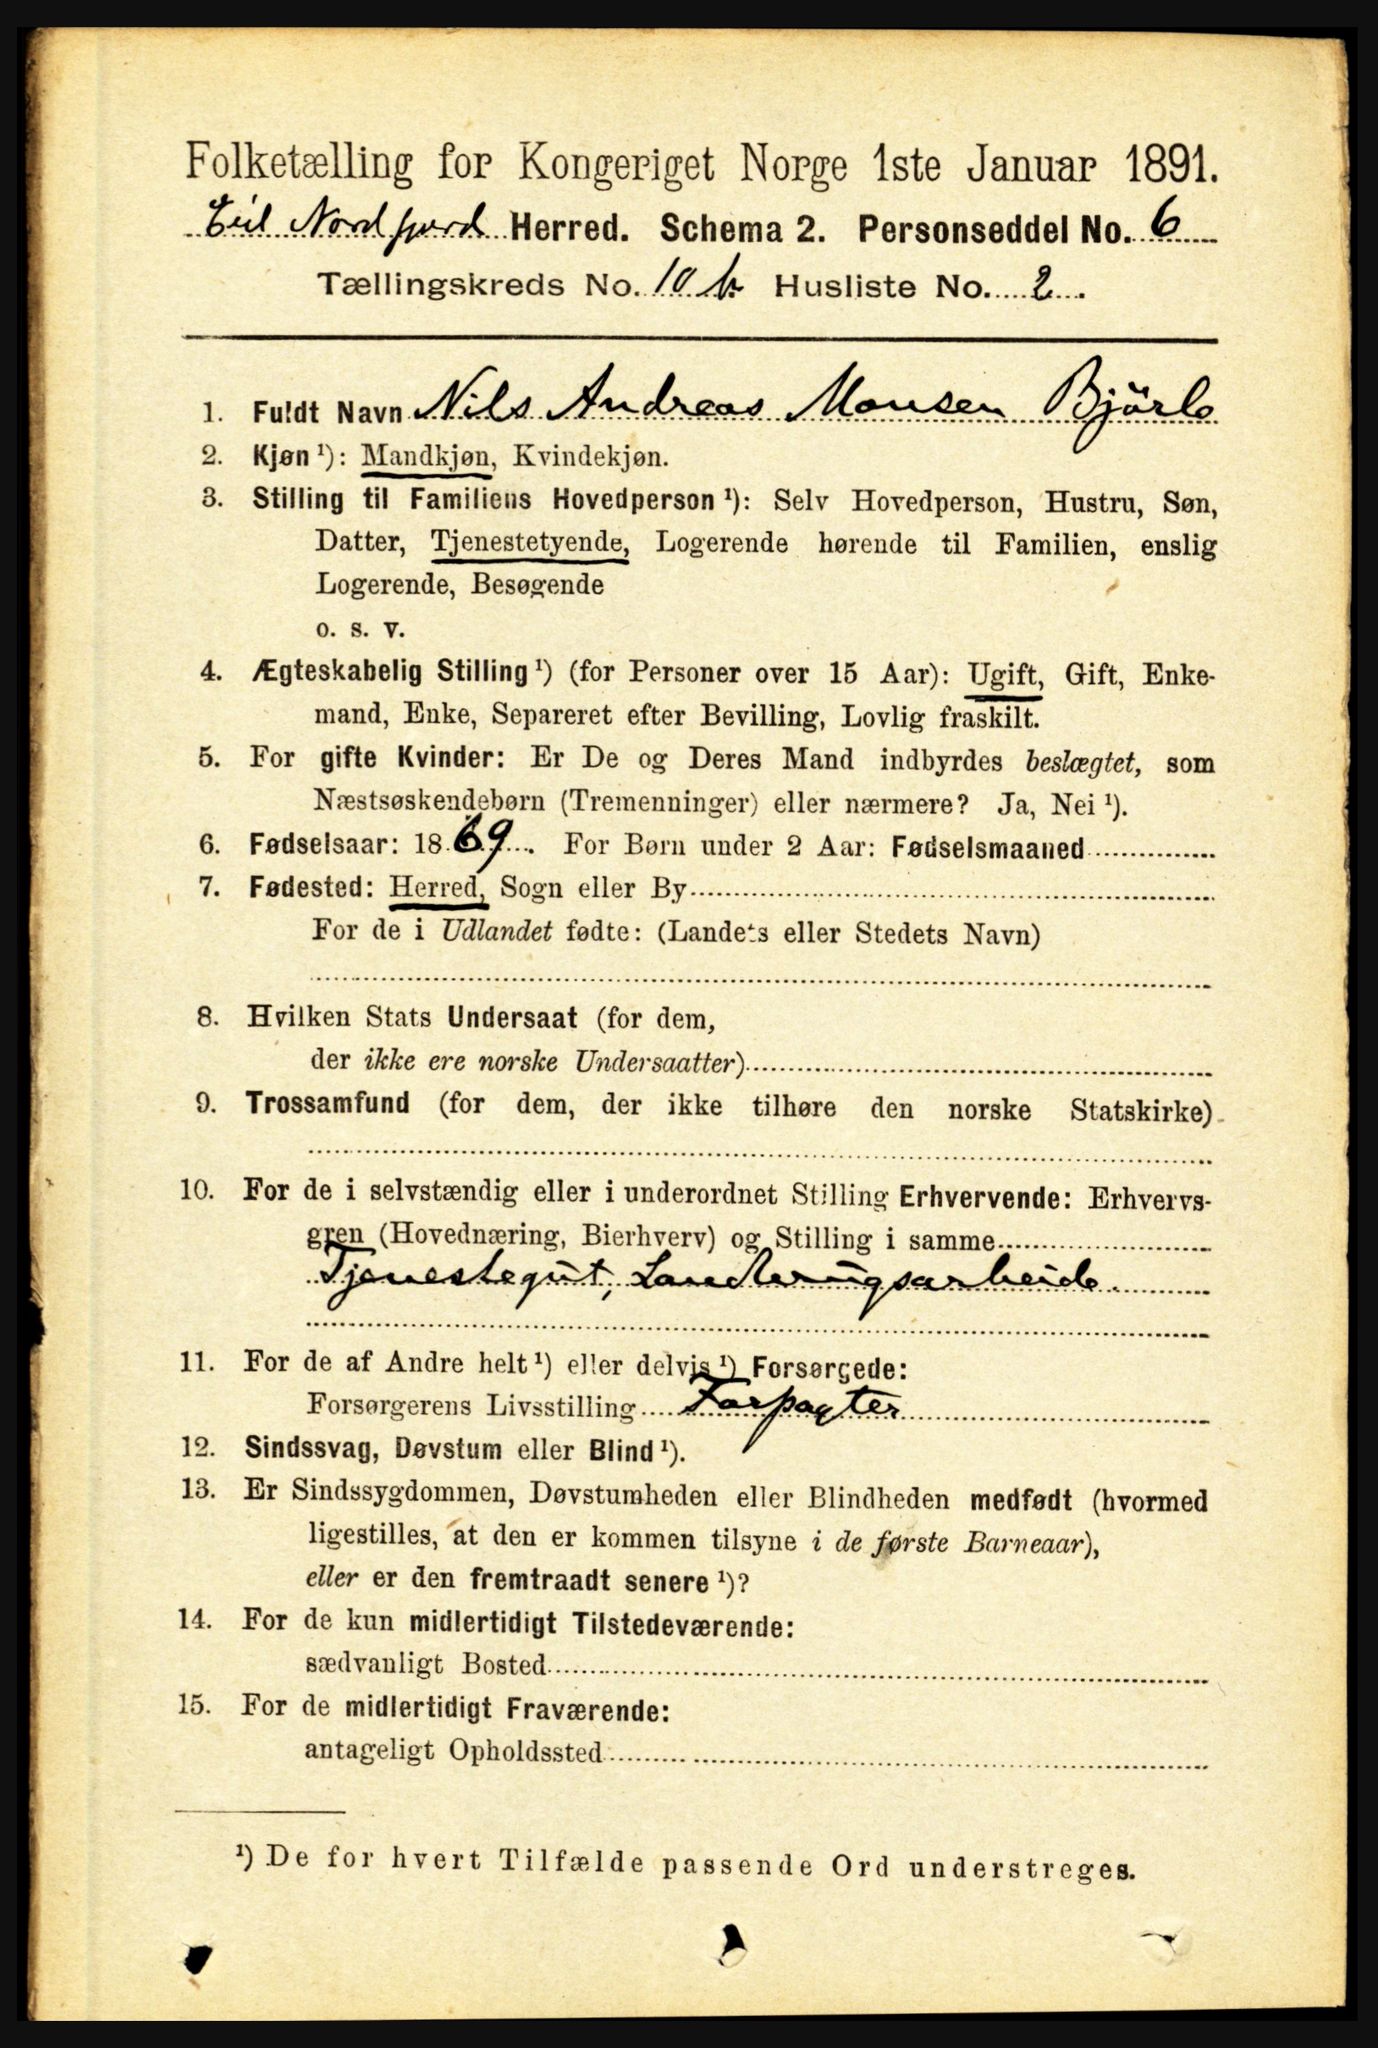 Folketælling for Kongeriget Norge 1ste Januar 1891.
Eid Nordfjord Herred. Schema 2. Personseddel No. 6
Tællingskreds No. 10 b. Husliste No. 2.
1. Fuldt Navn Nils Andreas Monsen Bjørlo
2. Kjøn ¹): Mandkjøn, Kvindekjøn.
3. Stilling til Familiens Hovedperson ¹): Selv Hovedperson, Hustru, Søn,
Datter, Tjenestetyende, Logerende hørende til Familien, enslig
Logerende, Besøgende
o. s. v.
4. Ægteskabelig Stilling ¹) (for Personer over 15 Aar): Ugift, Gift, Enke-
mand, Enke, Separeret efter Bevilling, Lovlig fraskilt.
5. For gifte Kvinder: Er De og Deres Mand indbyrdes beslægtet, som
Næstsøskendebørn (Tremenninger) eller nærmere? Ja, Nei ¹).
6. Fødselsaar: 1869. For Børn under 2 Aar: Fødselsmaaned
7. Fødested: Herred, Sogn eller By
For de i Udlandet fødte: (Landets eller Stedets Navn)
8. Hvilken Stats Undersaat (for dem,
der ikke ere norske Undersaatter)
9. Trossamfund (for dem, der ikke tilhøre den norske Statskirke)
10. For de i selvstændig eller i underordnet Stilling Erhvervende: Erhvervs-
gren (Hovednæring, Bierhverv) og Stilling i samme
Tjenestegut, Landbrugsarbeide.
11. For de af Andre helt ¹) eller delvis ¹) Forsørgede:
Forsørgerens Livsstilling Forpagter
12. Sindssvag, Døvstum eller Blind ¹).
13. Er Sindssygdommen, Døvstumheden eller Blindheden medfødt (hvormed
ligestilles, at den er kommen tilsyne i de første Barneaar),
eller er den fremtraadt senere ¹)?
14. For de kun midlertidigt Tilstedeværende:
sædvanligt Bosted
15. For de midlertidigt Fraværende:
antageligt Opholdssted
¹) De for hvert Tilfælde passende Ord understreges.